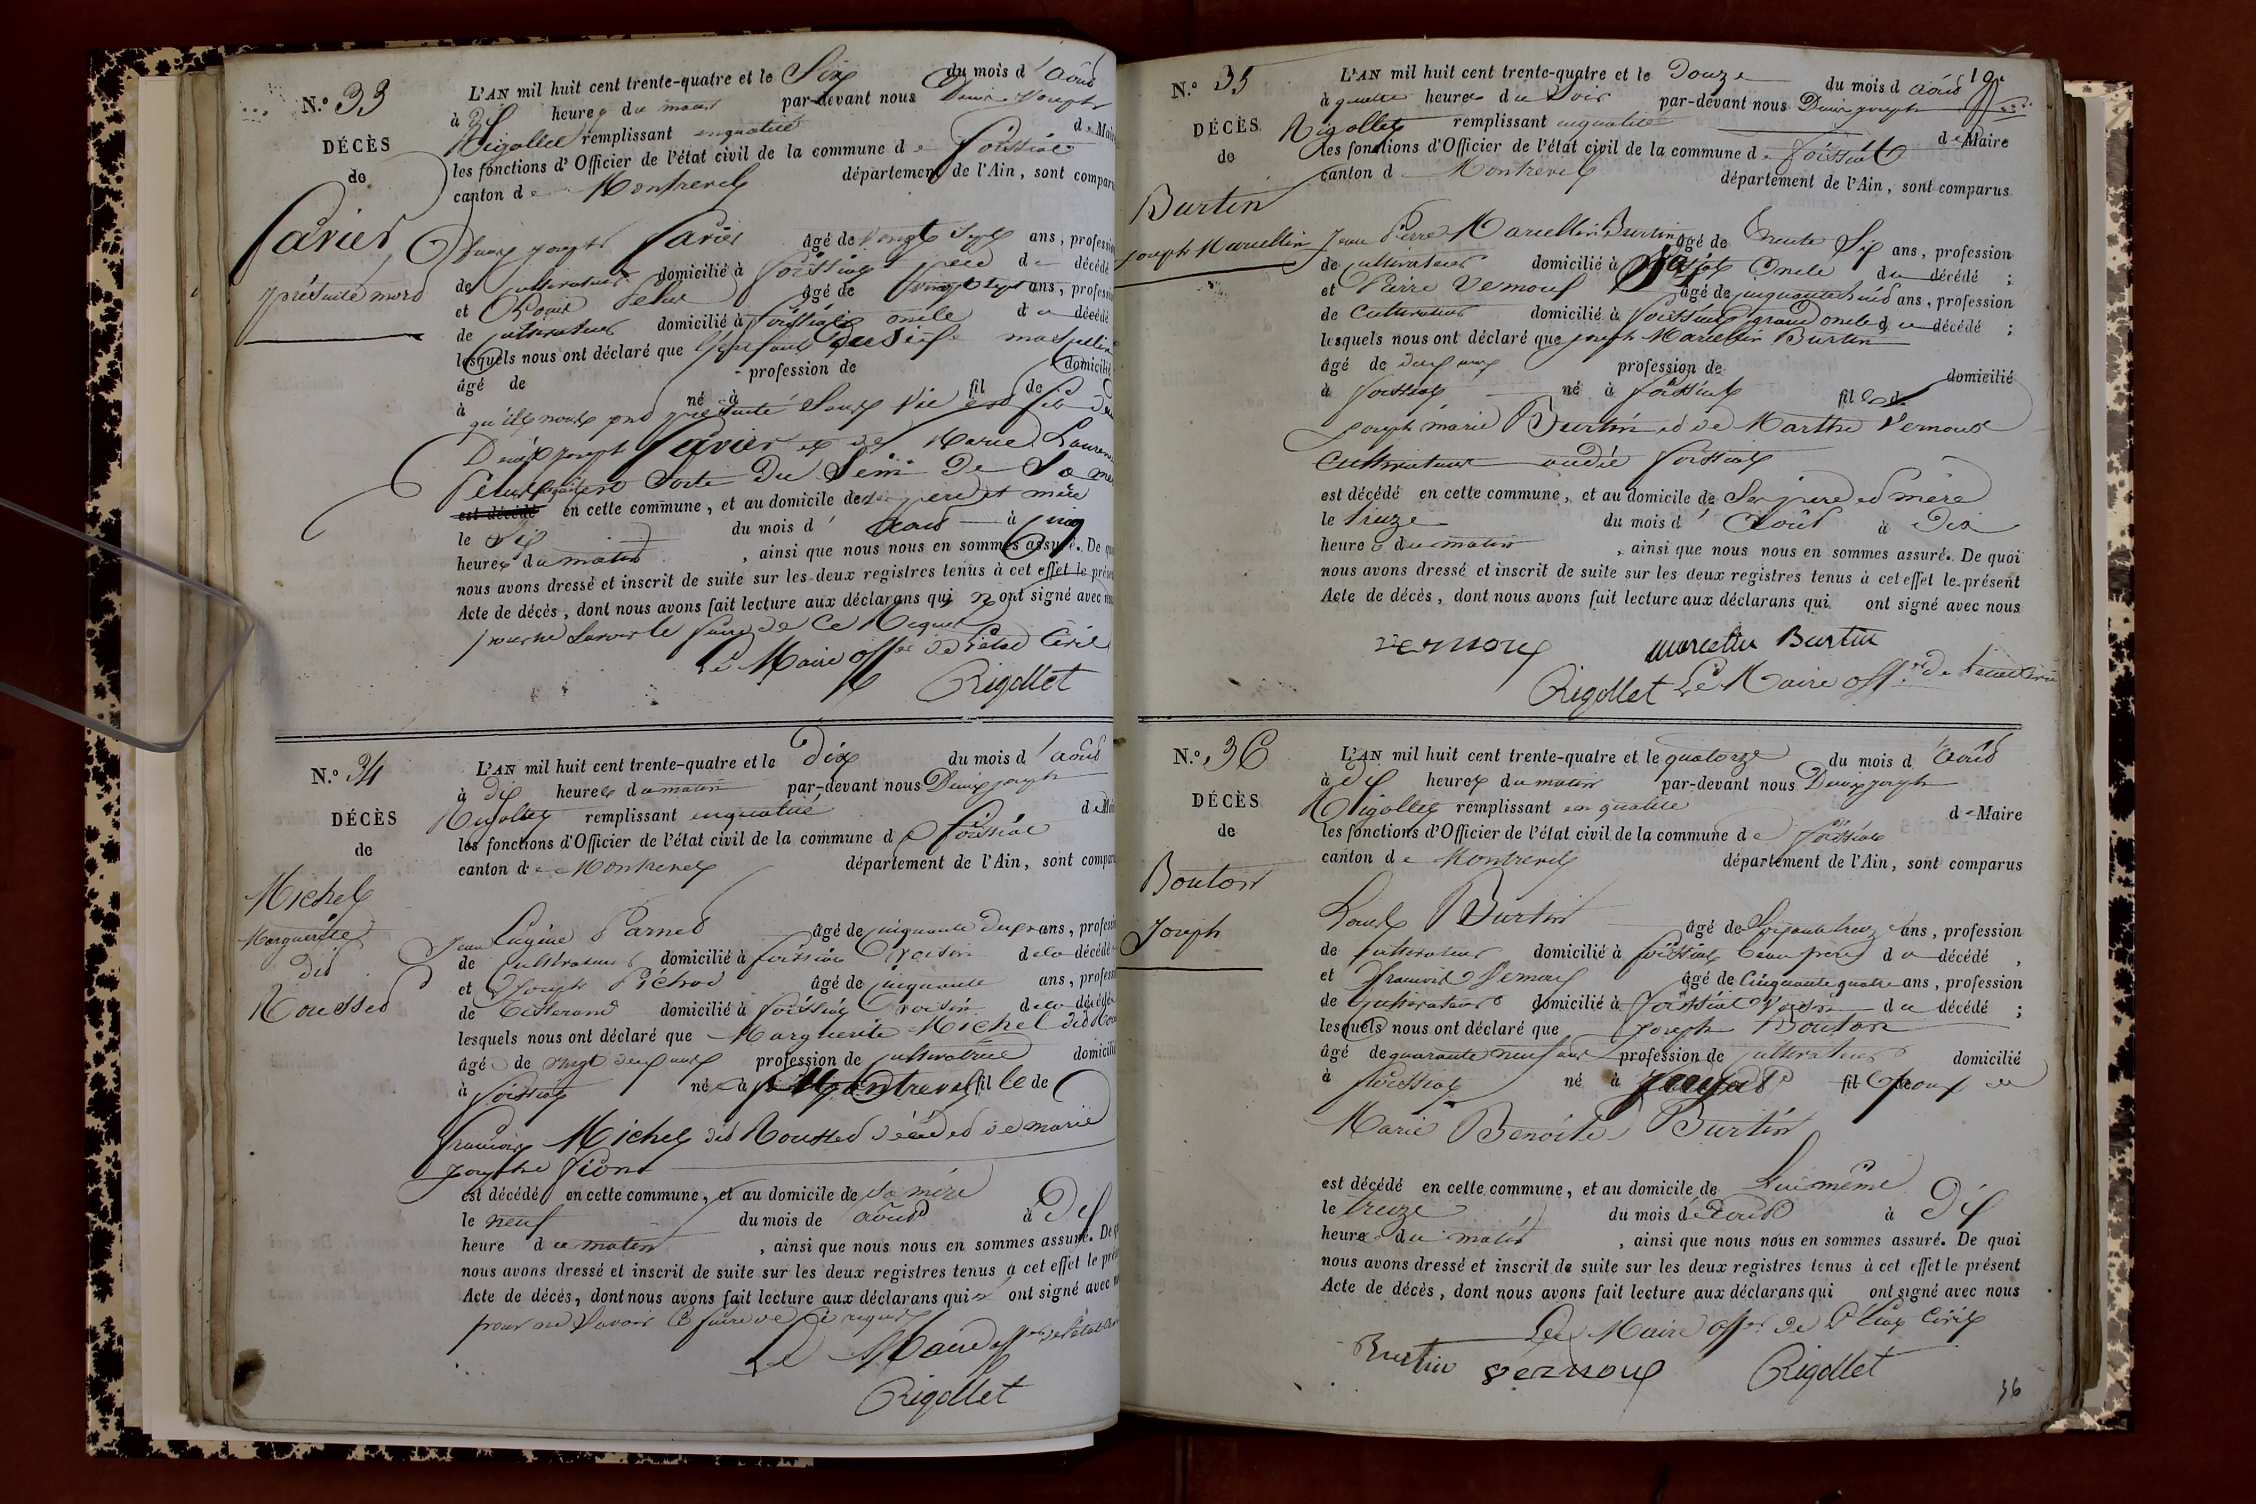 N.o 33
DÉCÈS
de
Favier
présenté mord
L'AN mil huit cent trente-quatre et le Six du mois d'aoûd
à dix heures du matin par-devant nous Denis Joseph
Rigollet remplissant enqualité de Maire
les fonctions d'Officier de l'état civil de la commune de foissiat
canton de Montrevel département de l'Ain, sont comparu
Denis joseph favier âgé de vingt Sept ans, profession
de cultivateur domicilié à foissiat père du décédé
et Pélus âgé de vingt sept ans, profession
de cultivateur domicilié à foissiat oncle du décédé
lesquels nous ont déclaré que l'enfant du Sexe masculin
âgé de profession de domicilié
à né à fil de
qu'ils nous ond présenté Sans Vie est fils de
Denis joseph favier et de Marie Laurence
Pélus Sorti Du Sein De Sa mère
est décédé en cette commune, et au domicile de ses père et mère
le Six du mois d'aoud à cinq
heures du matin, ainsi que nous nous en sommes assuré. De quoi
nous avons dressé et inscrit de suite sur les deux registres tenus à cet effet le présent
Acte de décès, dont nous avons fait lecture aux déclarans qui n'ont signé avec nous
pour ne Savoir le faire de Ce Requis
Le Maire offer de l'état Civil
Rigollet
N.o 34
DÉCÈS
de
Michel
Marguerite
did
Roussed
L'AN mil huit cent trente-quatre et le dix du mois d'aoûd
à dix heures du matin par-devant nous Denis joseph
Rigollet remplissant enqualité de Maire
les fonctions d'Officier de l'état civil de la commune de foissiat
canton de Montrevel département de l'Ain, sont comparu
Jean Eugène Parned âgé de cinquante deux ans, profession
de cultivateur domicilié à foissiat voisin de la décédée
et Joseph Pichod âgé de cinquante ans, profession
de Tisserand domicilié à foissiat voisin de la décédée
lesquels nous ont déclaré que Marguerite Michel did Rou
âgé de vingt deux ans profession de cultivatrice domicilié
à foissiat née à Montrevel fille de
françois Michel did Roussed décédé et de marie
josephe fion
est décédé en cette commune, et au domicile de sa mère
le neuf du mois de aoûd à dix
heure du matin, ainsi que nous nous en sommes assuré. De quoi
nous avons dressé et inscrit de suite sur les deux registres tenus à cet effet le présent
Acte de décès, dont nous avons fait lecture aux déclarans qui n'ont signé avec nous
pour ne Savoir le faire de ce requis
Le Maire offer de l'état civil
Rigollet
N.o 35
DÉCÈS
de
Burtin
joseph Marcellin
19e
L'AN mil huit cent trente-quatre et le Douze du mois d aoûd
à quatre heures du Soir par-devant nous Denis joseph
Rigollet remplissant enqualité de Maire
les fonctions d'Officier de l'état civil de la commune de foissiat
canton d Montrevel département de l'Ain, sont comparus
Jean Pierre Marcellin Burtin âgé de trente Six ans, profession
de cultivateur domicilié à foissiat Oncle du décédé ;
et Pierre Vernoux âgé de cinquante huid ans, profession
de Cultivateur domicilié à foissiat grand oncle du décédé ;
lesquels nous ont déclaré que joseph Marcellin Burtin
âgé de deux ans profession de domicilié
à foissiat né à foissiat fils de
joseph marie Burtin ed de Marthe Vernoux
Cultivateur audit foissiat
est décédé en cette commune, et au domicile de Ses père ed mère
le treize du mois d'Août à dix
heure du matin, ainsi que nous nous en sommes assuré. De quoi
nous avons dressé et inscrit de suite sur les deux registres tenus à cet effet le présent
Acte de décès, dont nous avons fait lecture aux déclarans qui ont signé avec nous
vernoux marcellin Burtin
Rigollet Le Maire offer de l'état Civil
N.o 36
DÉCÈS
de
Bouton
Joseph
L'AN mil huit cent trente-quatre et le quatorze du mois d'aoûd
à dix heures du matin par-devant nous Denis joseph
Rigollet remplissant en qualité de Maire
les fonctions d'Officier de l'état civil de la commune de foissiat
canton de Montrevel département de l'Ain, sont comparus
Louis Burtin âgé de Soixante treize ans, profession
de cultivateur domicilié à foissiat beau frère du décédé ,
et françois Vernoux âgé de Cinquante quatre ans, profession
de cultivateur domicilié à foissiat Voisin du décédé ;
lesquels nous ont déclaré que joseph Bouton
âgé de quarante neuf ans profession de cultivateur domicilié
à foissiat né à fil Epoux de
Marie Benoite Burtin
est décédé en cette commune, et au domicile de Lui même
le treize du mois d'Aoûd à dix
heure du matin, ainsi que nous nous en sommes assuré. De quoi
nous avons dressé et inscrit de suite sur les deux registres tenus à cet effet le présent
Acte de décès, dont nous avons fait lecture aux déclarans qui ont signé avec nous
Le Maire offer de L'état Civil
Burtin vernoux Rigollet
36